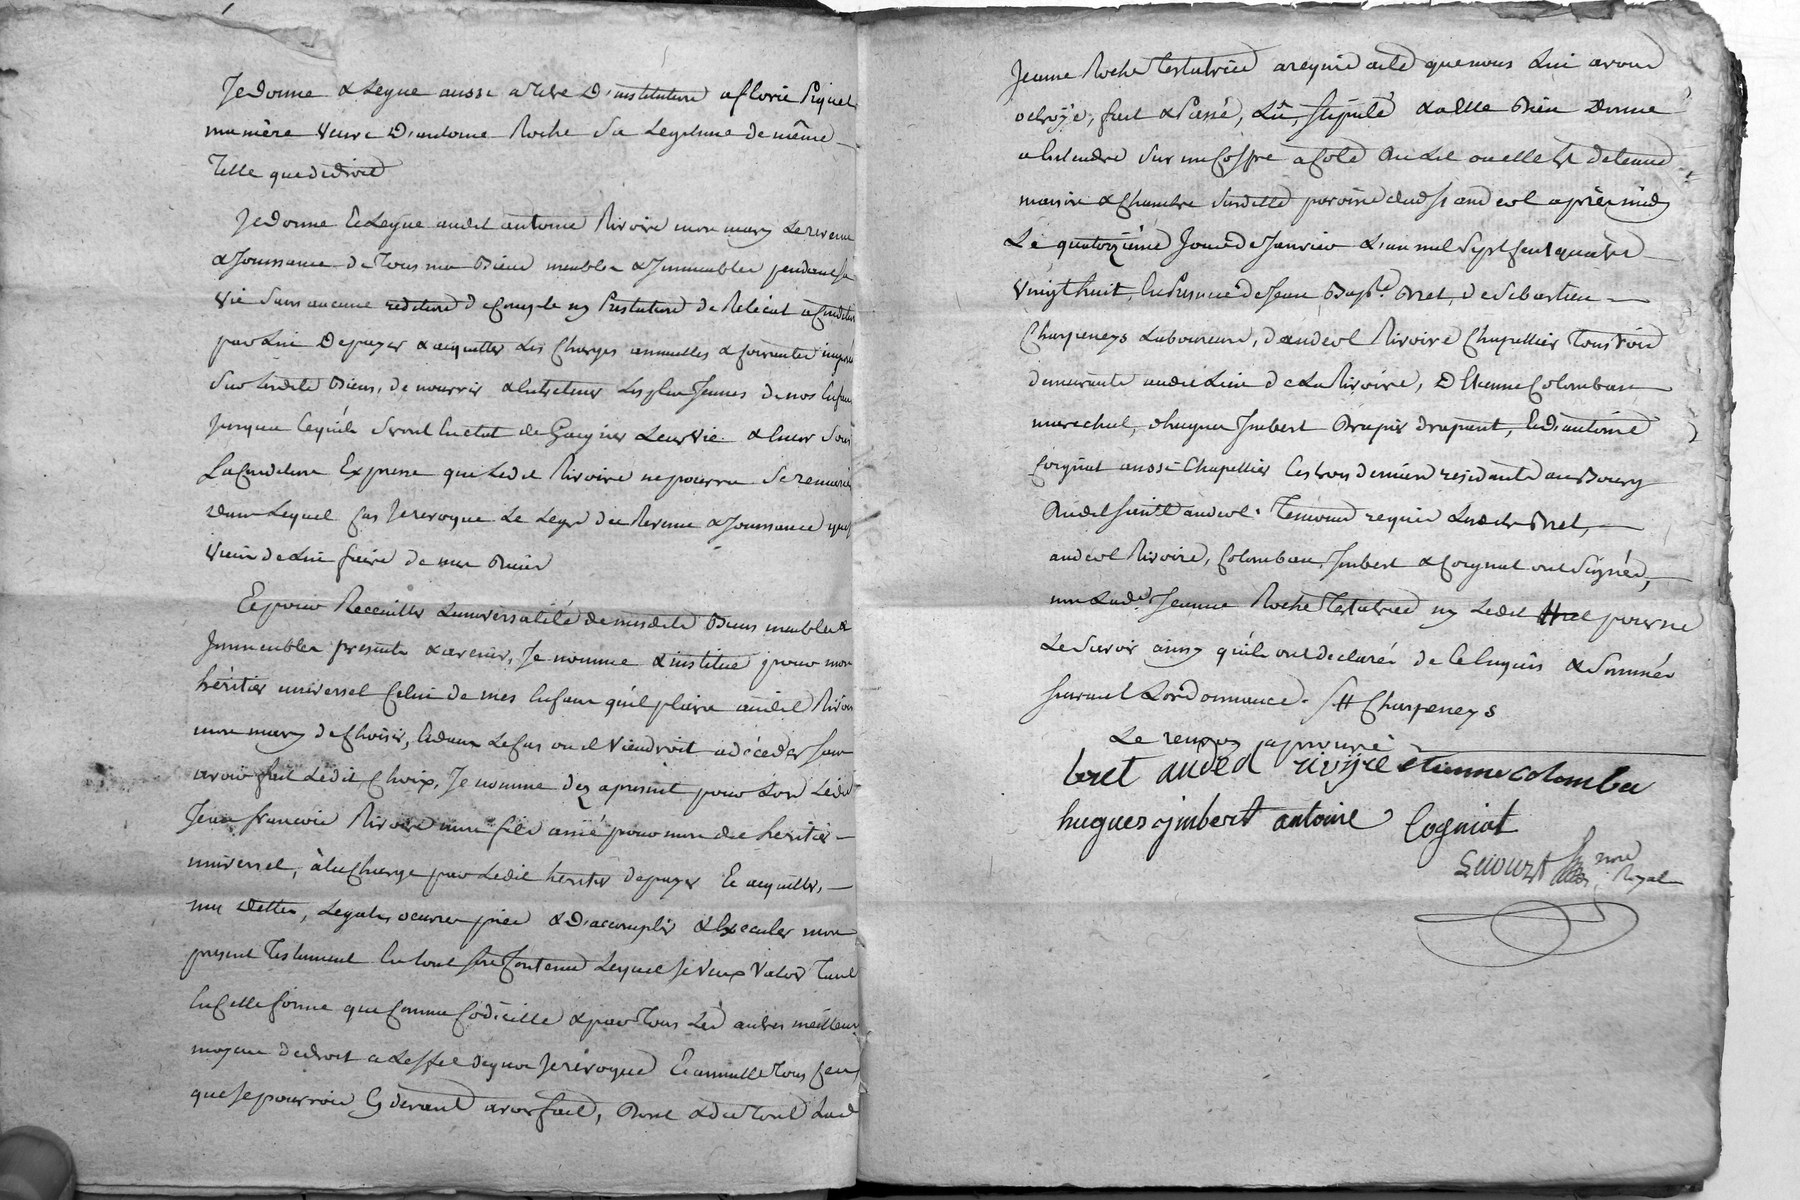 Je donne & Legue aussi a titre D'institution a florie Piquet
ma mère veuve D'antoine Roche Sa Legitime de même
telle que de droit
Je donne & Legue audit antoine Rivoire mon mary Le revenu
& Jouissance de tous mes Biens meubles & Immeubles pendant sa
vie sans aucune reddition de Compte ny Prestation de Relicat a Condition
par Lui De payer & acquitter Les Charges annuelles & foncieres imposés
sur lesdits Biens, de nourrir & Entretenir Les plus Jeunes de nos Enfans
Jusques Ce qu'ils soient En etat de Gaigner Leur vie & Encor sous
La Condition Expresse que Ledit Rivoire ne pourra Se remarier
dans Lequel Cas Je revoque Le Legs du Revenu & Jouissance que
viens de Lui faire de mes Biens
Et pour Receuillir L'universalité de mesdits Biens meubles &
Immeubles presents & avenir, Je nomme & institue pour mon
héritier universel Celui de mes Enfans qu'il plaira audit Rivoire
mon mary de Choisir, Et dans Le Cas ou il viendroit a décéder sans
avoir fait Ledit Choix, Je nomme dez apresent pour Lors Ledit
Jean francois Rivoire mon fils ainé pour mon dit heritier
universel, à la Charge par Ledit heritier de payer Et acquitter,
mes dettes, Legats, oeuvres pies & D'accomplir & Executer mon
present Testament En tout son Contenu Lequel Je veux valoir Tant
En Cette forme que Comme Codicille & par Tous Les autres meilleurs
moyens de droit a L'effet de quoi Je revoque Et annulle Tous Ceux
que Je pourrois Cy devant avoir fait, Dont & du Tout Lad
Jeanne Roche Testatrice a requis acte que nous Lui avons
octroyé, fait & Passé, Lû, stipulé & a Elle Bien Donné
a Entendre sur un Coffre a Coté Du Lit ou elle Est detenue
maison & Chambre susdites paroisse dud st andeol après midy
Le quatorzième Jour de Janvier L'an mil Sept Cent quatre
vingt huit, En Presence de Jean Bapte Bret, de Sebastien
Charpeneys Laboureurs, d'andeol Rivoire Chapellier Tous trois
demeurants audit Lieu de La Rivoire, D'Etienne Colomban
marechal, d'hugues Imbert Drapier drapant, Et d'antoine
Coignat aussi Chapellier Les trois derniers residants au Bourg
Dudit saint andeol. Temoins requis Lesdits Bret,
andeol Rivoire, Colomban, Imbert & Coignat ont Signés,
non Lade Jeanne Roche Testatrice ny Ledit # pour ne
Le Savoir ainsy qu'ils ont declaré de Ce Enquis & Sommés
suivant L'ordonnance. # Charpeneys
Le renvoy aprouvé
bret andeol rivoire etienne colomban
hugues imbert antoine Cogniat
nore
Royal